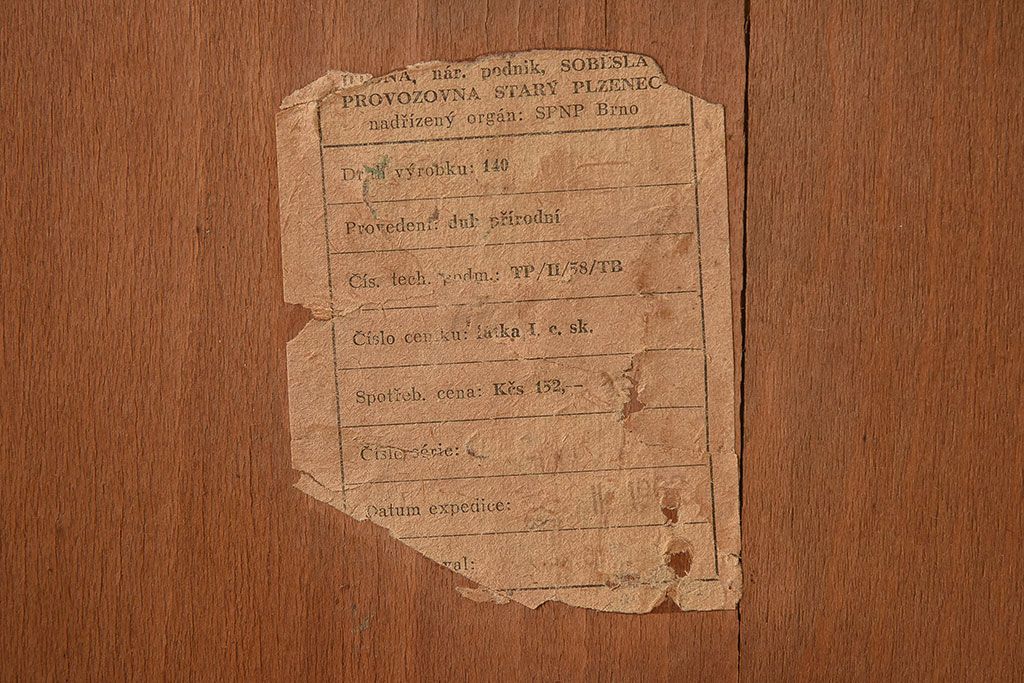 nár. podnik, SOBĚSLA
PROVOZOVNA STARÝ PLZENEC
nadřízený orgán: SPNP Brno
výrobku: 140
Provedení: dub přírodní
Čís. tech. podm.: TP/II/58/TB
Číslo ceníku: látka I. c. sk.
Spotřeb. cena: Kčs 152,—
Číslo série:
Datum expedice:
val: